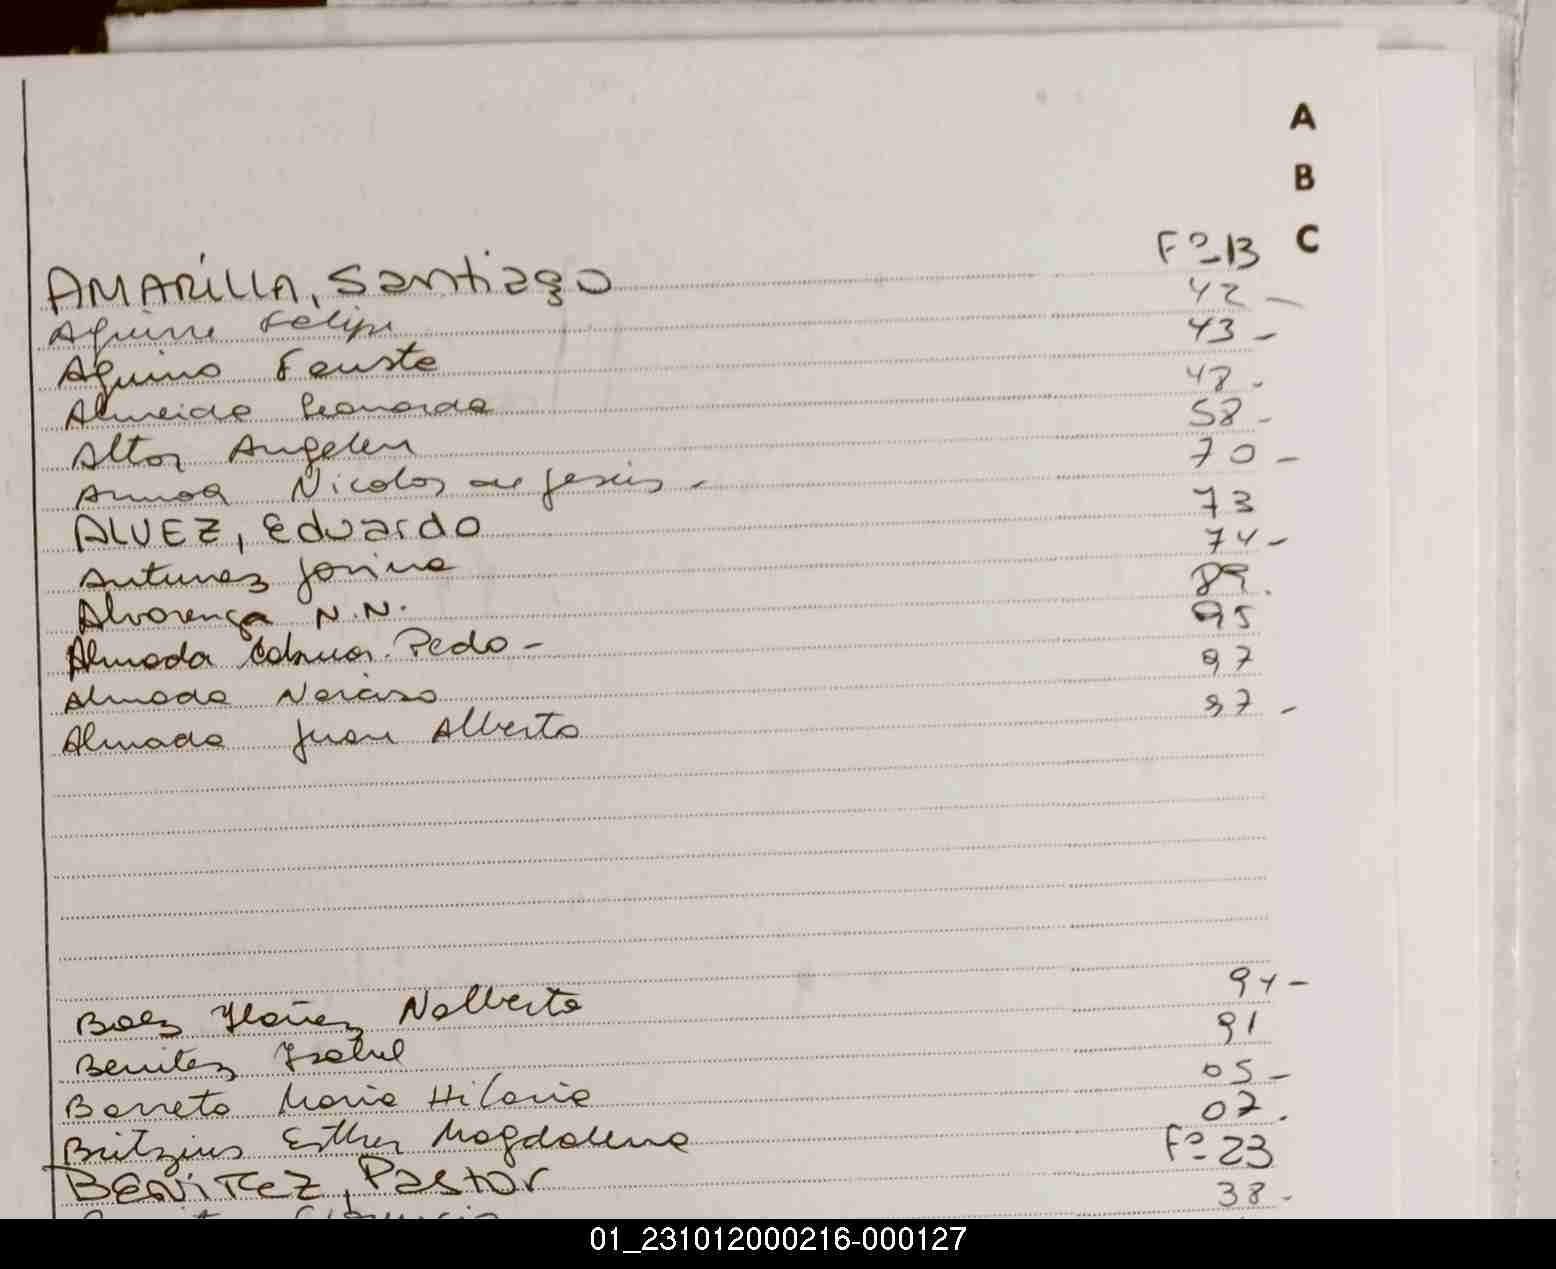 A
B
C
AMARILLA, Santiago Fº 13
Aguirre Felipe 42 -
Aquino Fausto 43 -
Almeida Leonarda 48 -
Altor Angeles 58 -
Armoa Nicolas de Jesús - 70 -
ALVEZ, Eduardo 73
Antunez Jorina 74 -
Alvarenga N.N. 89.
Almada Pedro - 95
Almada Narciso 97
Almada Juan Alberto 97 -
Baez Nalberto 94 -
Benitez Ysabel 91
Barreto Maria Hilaria 05 -
Britzius Esther Magdalena 07.
BENITEZ, Pastor Fº 23
38 -
01_231012000216-000127